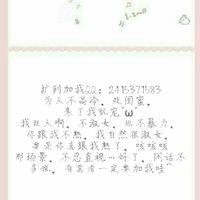 扩列加我QQ：2415371583
为人不高冷，处闺蜜，
来了我就宠˘ω˘
我超人啊，不淑女，也不暴力，
你跟我不熟，我自然很淑女，
要是你真跟我熟了，咳咳咳
那场景，不忍直视…好了，闲话不
多说，有意者一定要加我哇~